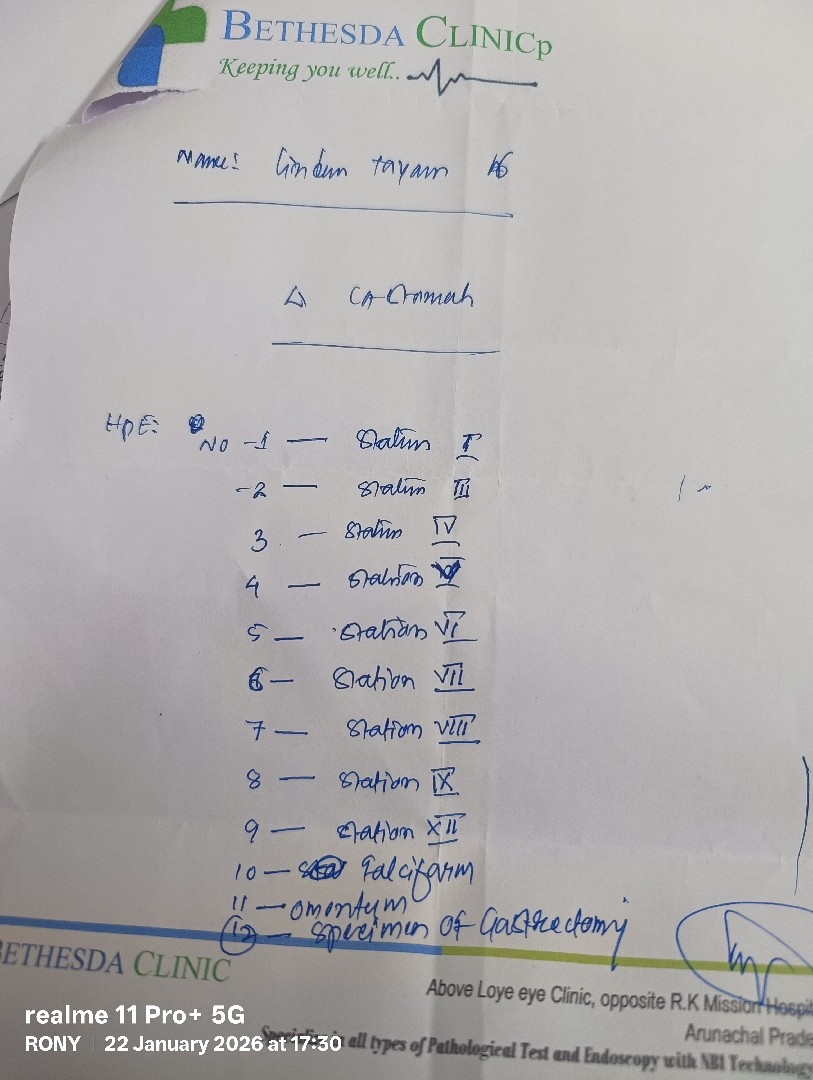 BETHESDA CLINICp
Keeping you well..
Name: tayam
Δ CA
HPE: NO -1 — Station I
-2 — Station III
3 — Station IV
4 — Station V
5 — Station VI
6 — Station VII
7 — Station VIII
8 — Station IX
9 — Station XII
10 — Falciform
11 — omentum
12 — specimen OF Gastrectomy
BETHESDA CLINIC
Above Loye eye Clinic, opposite R.K Mission Hospit
Arunachal Prade
all types of Pathological Test and Endoscopy with NBI Technology
realme 11 Pro+ 5G
RONY 22 January 2026 at 17:30